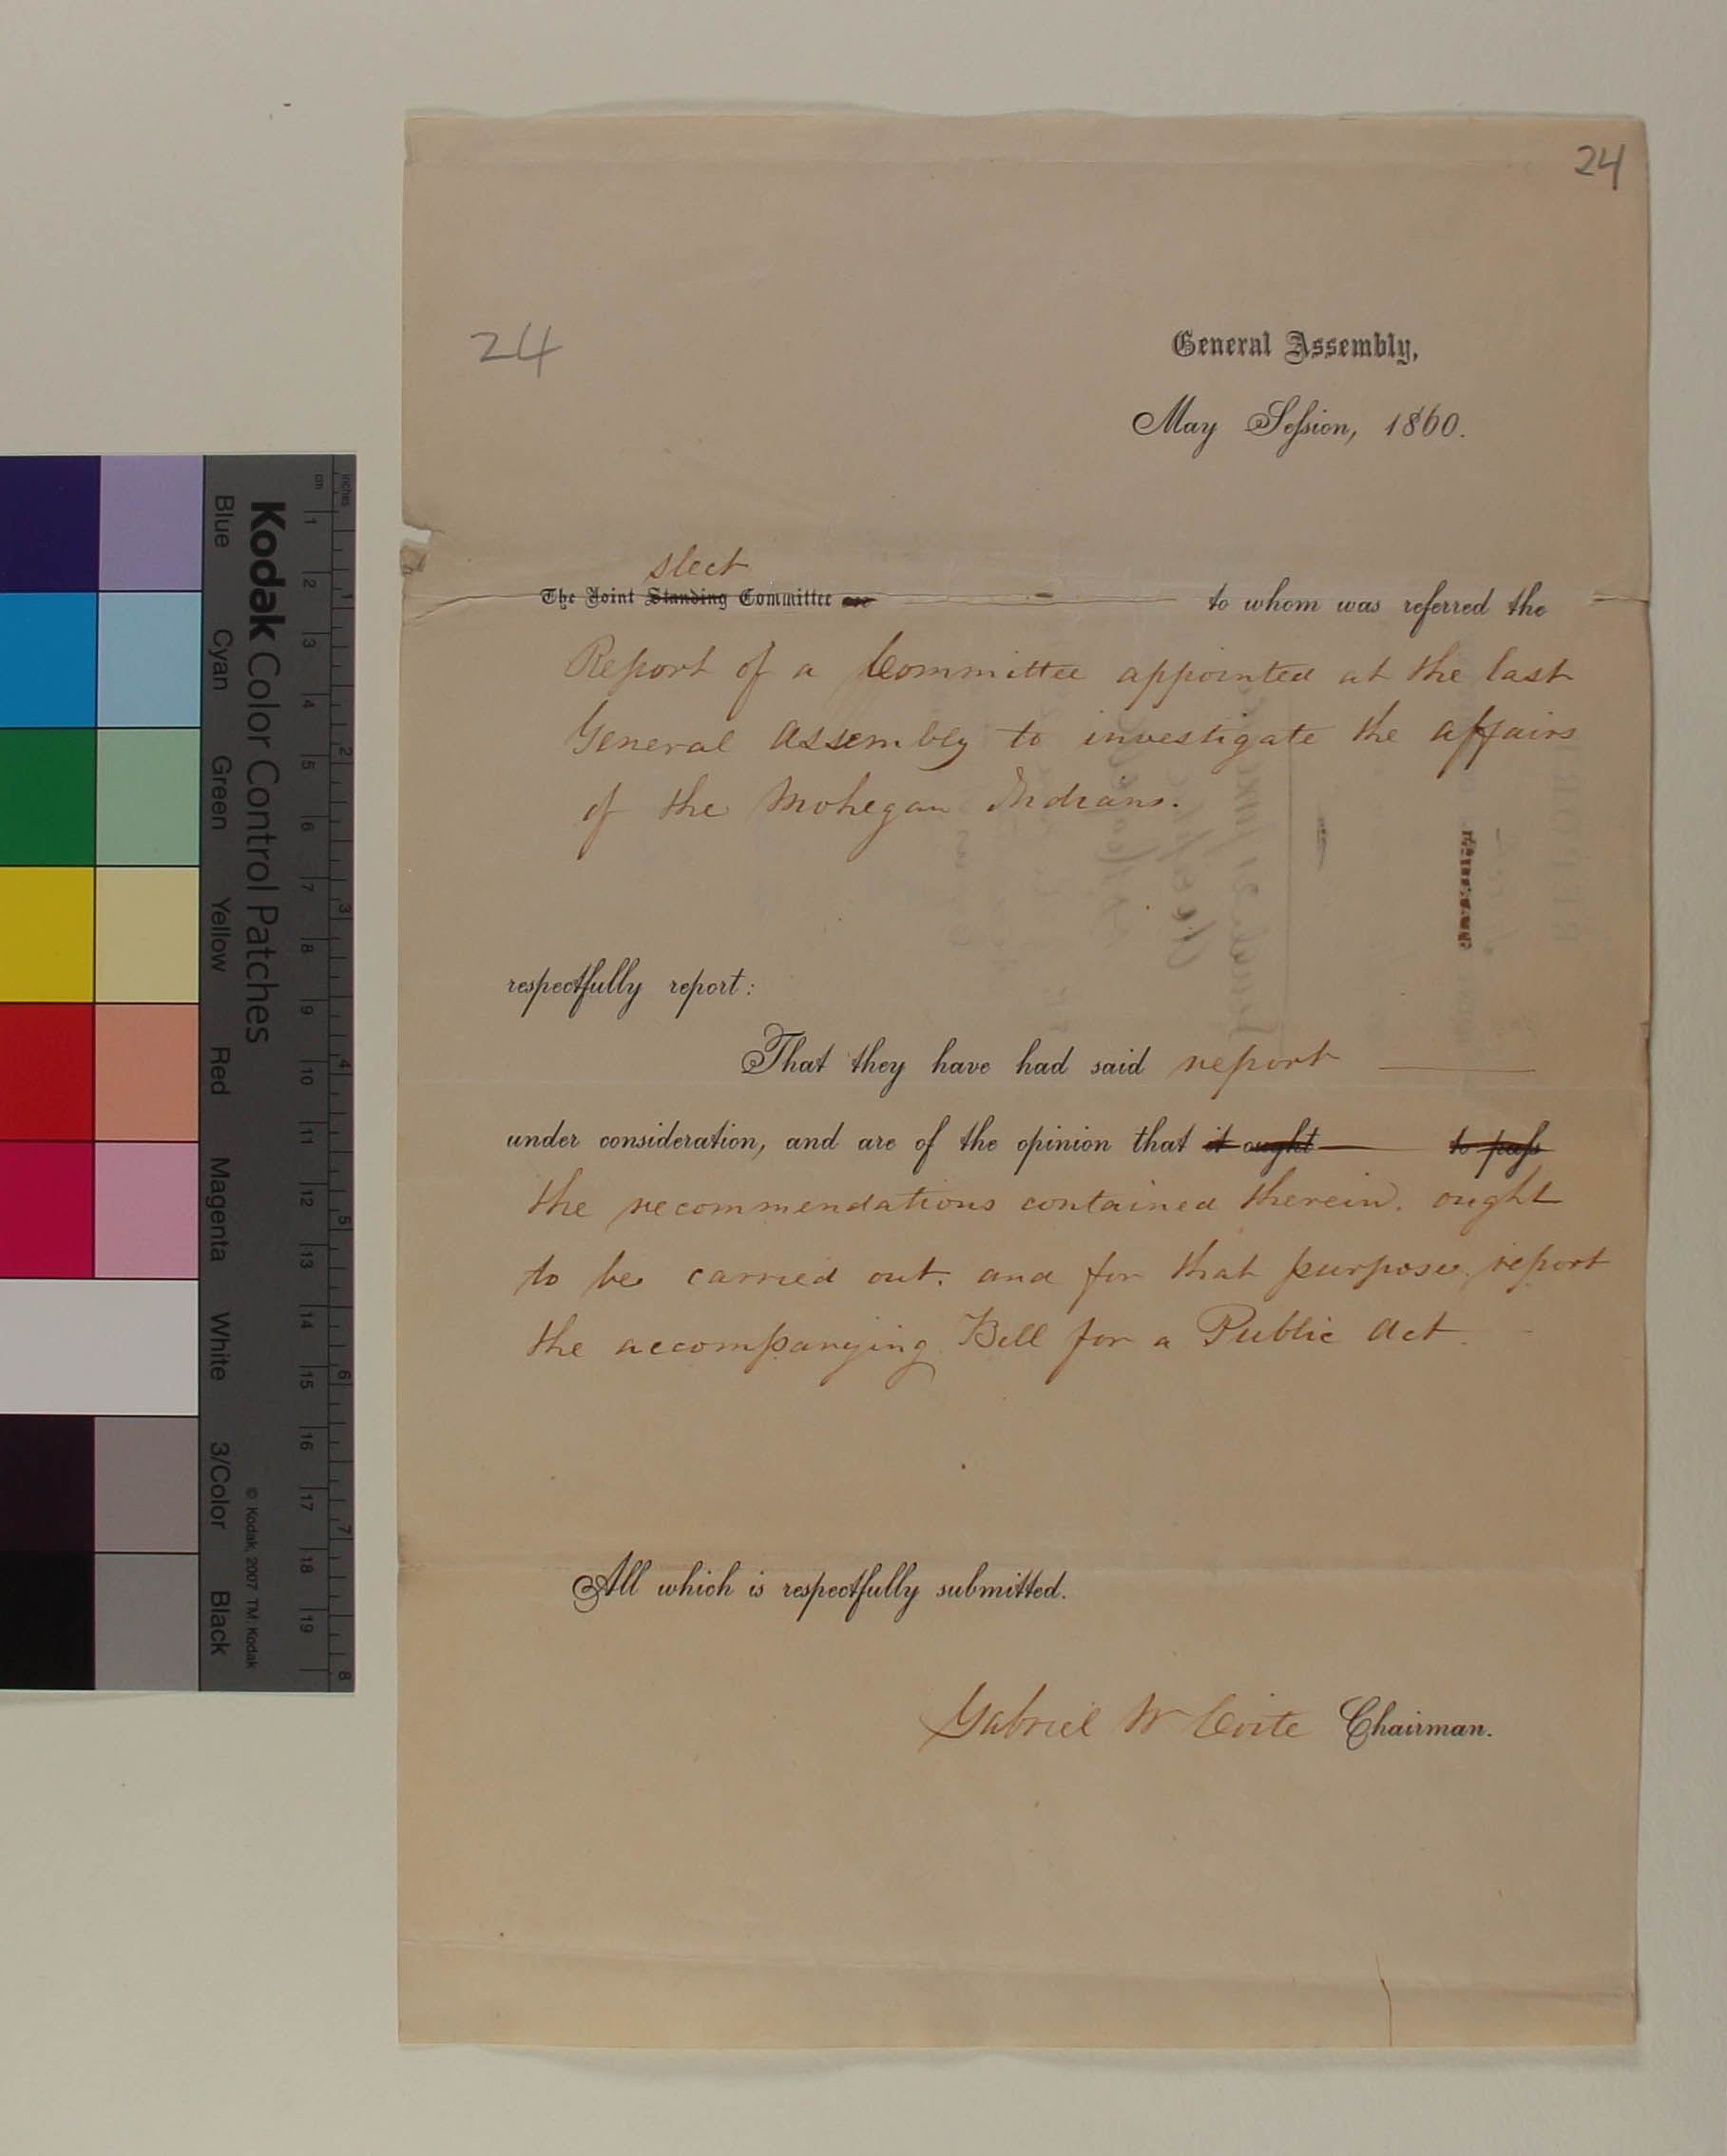 24
24
General Assembly,
May Session, 1860.
slect
The Joint Standing Committee on to whom was referred the
Report of a Committee appointed at the last
General Assembly to investigate the affairs
of the Mohegan Indians.
respectfully report:
That they have had said report
under consideration, and are of the opinion that it ought to pass
the recommendations contained therein. ought
to be carried out. and for that purpose, report
the accompanying Bill for a Public Act.
All which is respectfully submitted.
Gabriel W Coite Chairman.
Kodak Color Control Patches
© Kodak, 2007 TM: Kodak
Blue Cyan Green Yellow Red Magenta White 3/Color Black
cm 1 2 3 4 5 6 7 8 9 10 11 12 13 14 15 16 17 18 19
inches 1 2 3 4 5 6 7 8